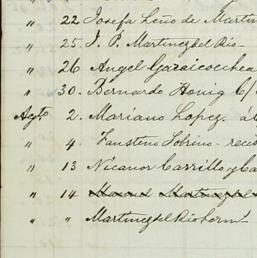 " 22 Josefa Leño de Martin
" 25. J. P. Martinez del Rio
" 26 Angel Garaicoechea
" 30. Bernardo Honig C/
Agto 2. Mariano Lopez. á
" 4. Faustino Sobrino - reci
" 13 Nicanor Carrillo y Ca
" 14 Manuel Martinez del
" " Martinez del Rio herm